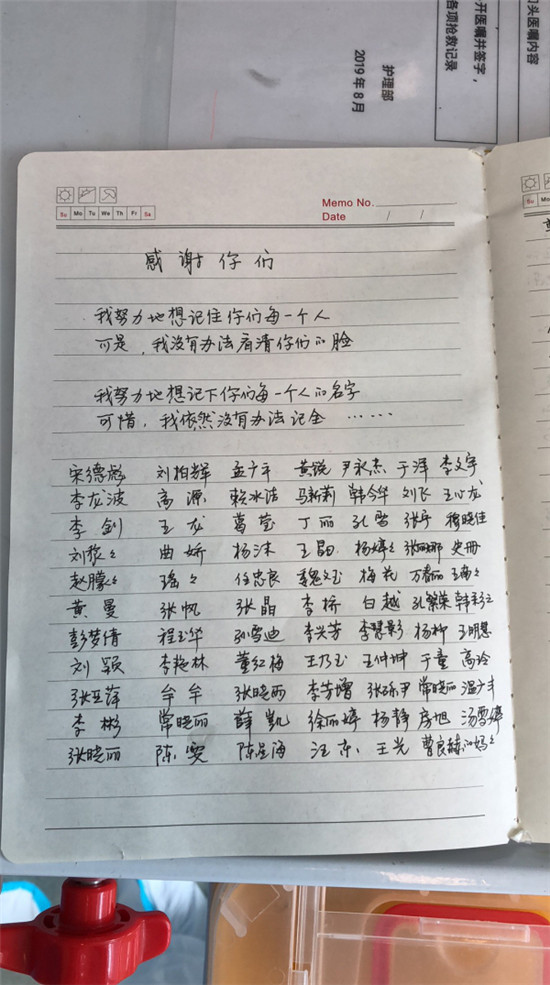 门头医嘱内容
开医嘱并签字，
各项抢救记录
护理部
2019年8月
Su Mo Tu We Th Fr Sa
Memo No.
Date / /
Su Mo
感谢你们
我努力地想记住你们每一个人
可是，我没有办法看清你们的脸
我努力地想记下你们每一个人的名字
可惜，我依然没有办法记全……
宋德彪 刘柏辉 孟广平 黄锐 尹永杰 于泽 李文宇
李龙波 高源 赖冰洁 马新莉 韩今华 刘飞 王心龙
李剑 王龙 葛莹 丁丽 孔雪 张宇 穆晓佳
刘猿々 曲娇 杨沫 王晶 杨婷々 张丽娜 史册
赵朦々 瑶々 任忠良 魏文玉 梅花 万春丽 王南々
黄曼 张帆 张晶 李桥 白越 孔繁荣 韩彩红
彭梦倩 程玉华 孙雪迪 李兴芳 李慧彩 杨柳 王明慧
刘颖 李艳林 董红梅 王乃玉 王仲坤 于童 高玲
张立萍 牟牟 张晓西 李芳增 张砾尹 常晓丽 温广丰
李彬 常晓丽 薛凯 徐丽婷 杨静 房旭 汤雪婷
张晓丽 陈雯 陈星海 汪东 王光 曹良赫的妈々